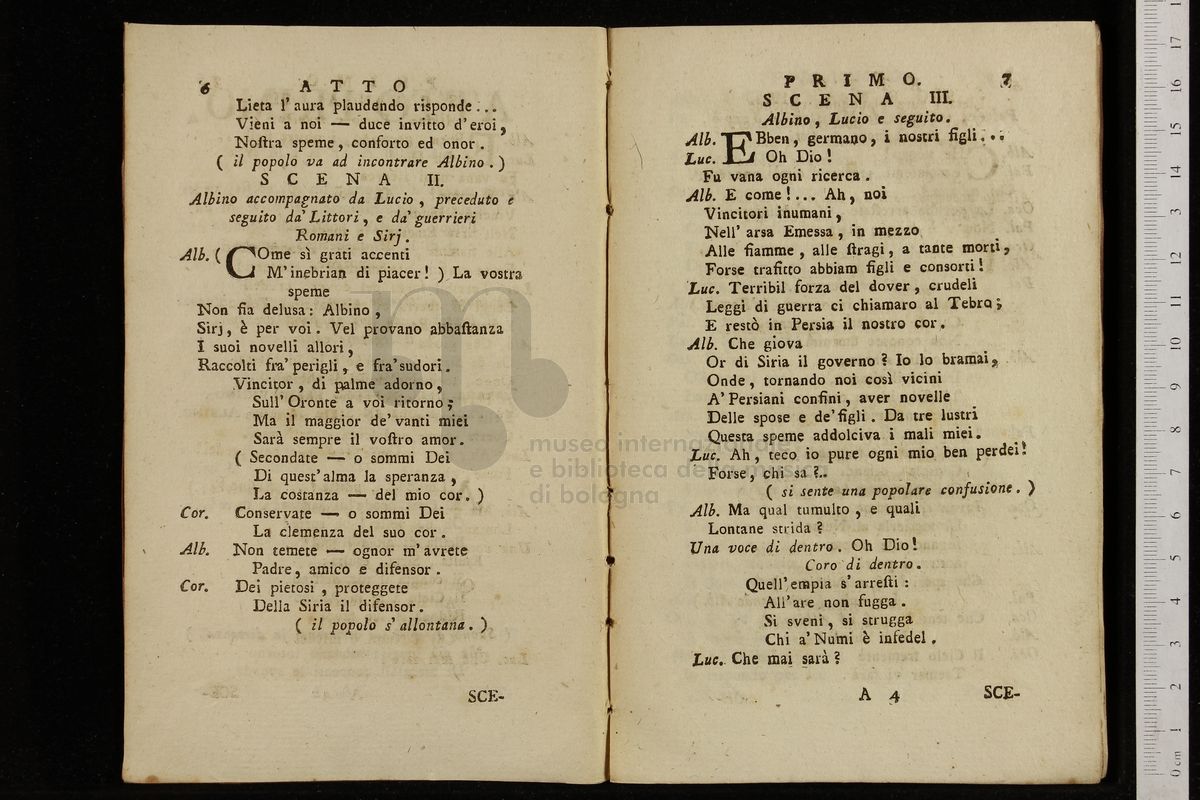 6 ATTO
Lieta l'aura plaudendo risponde...
Vieni a noi — duce invitto d'eroi,
Noſtra speme, conforto ed onor.
( il popolo va ad incontrare Albino. )
SCENA II.
Albino accompagnato da Lucio, preceduto e
seguito da' Littori, e da' guerrieri
Romani e Sirj.
Alb. ( COme sì grati accenti
M'inebrian di piacer! ) La vostra
speme
Non fia delusa: Albino,
Sirj, è per voi. Vel provano abbaſtanza
I suoi novelli allori,
Raccolti fra' perigli, e fra' sudori.
Vincitor, di palme adorno,
Sull' Oronte a voi ritorno;
Ma il maggior de' vanti miei
Sarà sempre il voſtro amor.
( Secondate — o sommi Dei
Di quest' alma la speranza,
La costanza — del mio cor. )
Cor. Conservate — o sommi Dei
La clemenza del suo cor.
Alb. Non temete — ognor m'avrete
Padre, amico e difensor.
Cor. Dei pietosi, proteggete
Della Siria il difensor.
( il popolo s'allontana. )
SCE-
PRIMO. 7
SCENA III.
Albino, Lucio e seguito.
Alb. EBben, germano, i nostri figli...
Luc. Oh Dio!
Fu vana ogni ricerca.
Alb. E come!... Ah, noi
Vincitori inumani,
Nell' arsa Emessa, in mezzo
Alle fiamme, alle ſtragi, a tante morti,
Forse trafitto abbiam figli e consorti!
Luc. Terribil forza del dover, crudeli
Leggi di guerra ci chiamaro al Tebro;
E restò in Persia il nostro cor.
Alb. Che giova
Or di Siria il governo? Io lo bramai,
Onde, tornando noi così vicini
A' Persiani confini, aver novelle
Delle spose e de' figli. Da tre lustri
Questa speme addolciva i mali miei.
Luc. Ah, teco io pure ogni mio ben perdei!
Forse, chi sa?..
( si sente una popolare confusione. )
Alb. Ma qual tumulto, e quali
Lontane strida?
Una voce di dentro. Oh Dio!
Coro di dentro.
Quell' empia s'arreſti:
All' are non fugga.
Si sveni, si strugga
Chi a' Numi è infedel.
Luc. Che mai sarà?
A 4 SCE-
m
museo internazionale
e biblioteca della musica
di bologna
0 cm 1 2 3 4 5 6 7 8 9 10 11 12 13 14 15 16 17